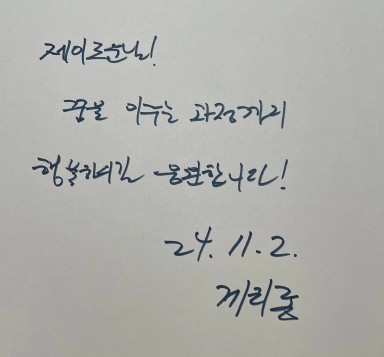 제이로운님!
꿈을 이루는 과정까지
행복하시길 응원합니다!
24. 11. 2.